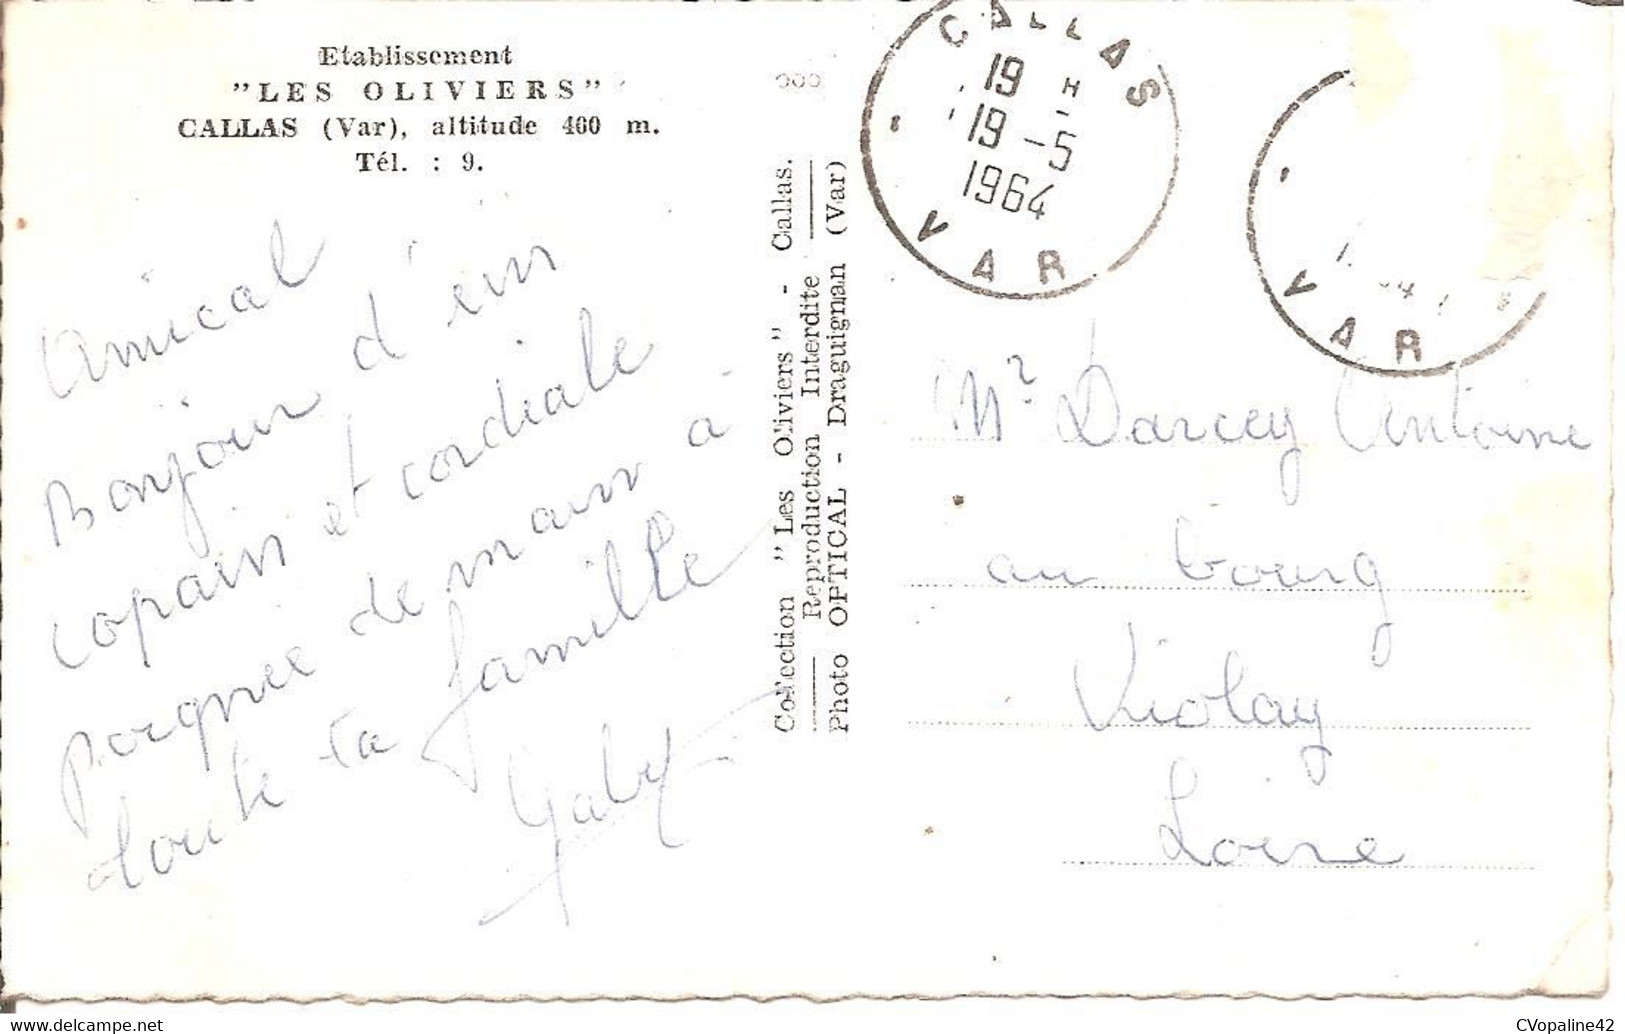 Etablissement
"LES OLIVIERS"
CALLAS (Var), altitude 400 m.
Tél. : 9.
Amical
Bonjour d'un
copain et cordiale
poignée de main à
toute la famille
Gaby
Collection "Les Oliviers" - Callas.
Reproduction Interdite
Photo OPTICAL - Draguignan (Var)
CALLAS
19 H
19 - 5
1964
VAR
VAR
Mr Darcey Antoine
au bourg
Violay
Loire
CVopaline42